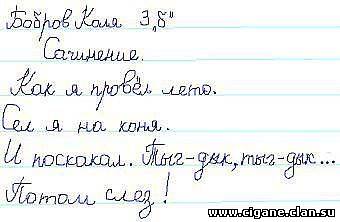 Бобров Коля 3 „б"
Сочинение.
Как я провёл лето.
Сел я на коня.
И поскакал. Тыг-дык, тыг-дык...
Потом слез!
www.cigane.clan.su